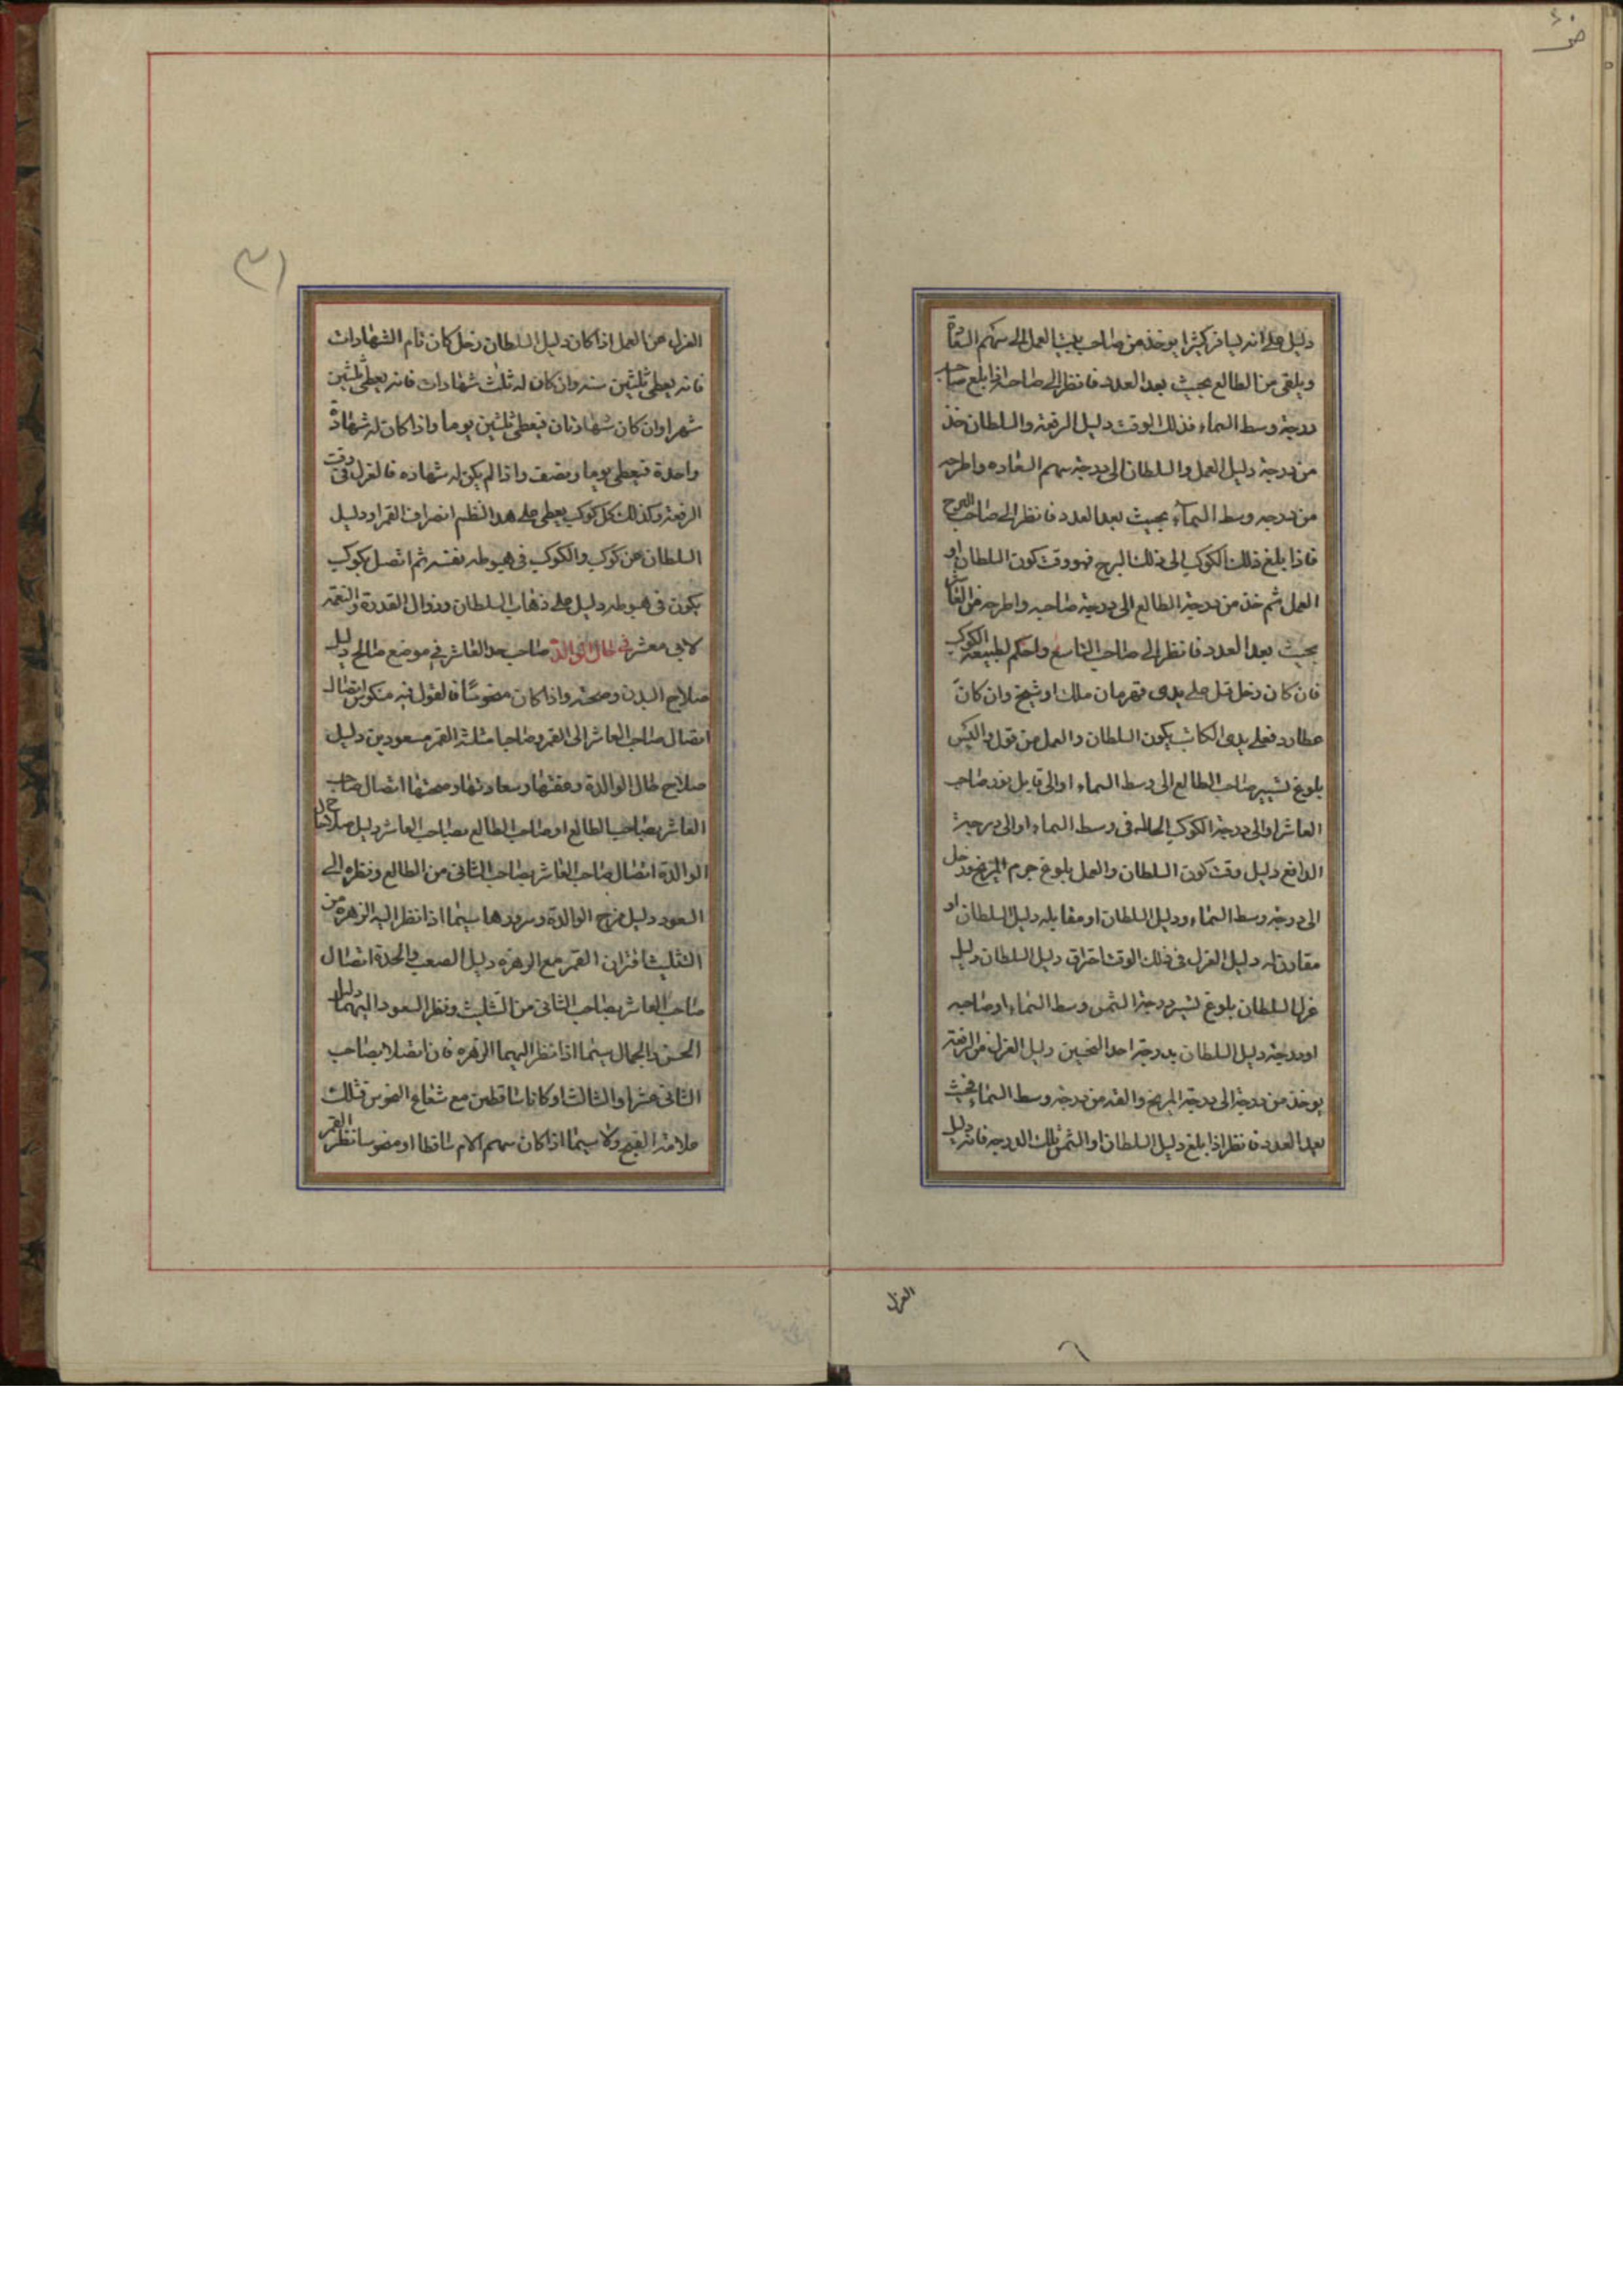 دليل على انه يسافر كثيرا يوخذ من صاحب بيت العمل الى سهم السعادة
ويلقى من الطالع بحيث بعد العدد فانظر الى صاحبه اذا بلغ صاحب
درجة وسط السماء فذلك الوقت دليل الرفعة والسلطان خذ
من درجة دليل العمل والسلطان الى درجة سهم السعاده واطرحه
من درجه وسط السمآء بحيث بعد العدد فانظر الى صاحب البرج
فاذا بلغ ذلك الكوكب الى ذلك البرج فهو وقت كون السلطان او
العمل ثم خذ من درجة الطالع الى درجة صاحبه واطرحه من العاشر
بحيث بعد العدد فانظر الى صاحب التاسع واحكم لطبيعة الكوكب
فان كان زحل قيل على يدى قهرمان ملك او شيخ وان كان
عطارد فعلى يدى الكاتب يكون السلطان والعمل من قول واليس
بلوغ تسيير صاحب الطالع الى وسط السماء او الى قابل نور صاحب
العاشر او الى درجة الكوكب الحال فى وسط السماء او الى درجة
الدافع دليل وقت كون السلطان والعمل بلوغ جرم المريخ وزحل
الى درجة وسط السماء ودليل السلطان او مقابله دليل السلطان او
مقارنه له دليل العزل فى ذلك الوقت احتراق دليل السلطان دليل
عزل السلطان بلوغ تسيير درجة الشمس وسط السماء او صاحبه
او درجة دليل السلطان بدرجة احد النحسين دليل العزل من الرفعة
يوخذ من درجة الى درجة المريخ والقه من درجة وسط السماء فحيث
بعد العدد فانظر اذا بلغ دليل السلطان او الشمس تلك الدرجه فانه دليل
العزل
العزل من العمل اذا كان دليل السلطان زحل كان تام الشهادات
فانه يعطى ثلثين سنه وان كان له ثلث شهادات فانه يعطى ثلثين
شهرا وان كان شهادتان فيعطى ثلثين يوما واذا كان له شهادة
واحدة فيعطى يوما ونصف واذا لم يكن له شهاده فالعزل فى وقت
الرفعة وكذلك كل كوكب يعطى على هذا النظم انصراف القمر او دليل
السلطان عن كوكب والكوكب فى هبوطه نفسه ثم اتصل بكوكب
يكون فى هبوطه دليل على ذهاب السلطان وزوال القدرة والنعمة
لابى معشر فى حال الوالدة صاحب حد العاشر فى موضع صالح دليل
صلاح البدن وصحته واذا كان منحوسًا فالقول فيه منكوس اتصال
اتصال صاحب العاشر الى القمر وصاحبا مثلثة القمر مسعودين دليل
صلاح حال الوالدة وعفتها وسعادتها وصحتها اتصال صاحب
العاشر بصاحب الطالع او صاحب الطالع بصاحب العاشر دليل صلاح حال
الوالدة اتصال صاحب العاشر بصاحب الثانى من الطالع ونظره الى
السعود دليل فرح الوالدة وسرورها سيما اذا نظر اليه الزهرة من
التثليث اقتران القمر مع الزهره دليل الصعب والحدة اتصال
صاحب العاشر بصاحب الثانى من التثليث ونظر السعود اليهما دليل
الحسن والجمال سيما اذا نظر اليهما الزهره فان اتصلا بصاحب
الثانى عشر او الثالث او كانا ساقطين مع شعاع النحوس فتلك
علامة القبح ولا سيما اذا كان سهم الام ساقطا او منحوسا نظر القمر